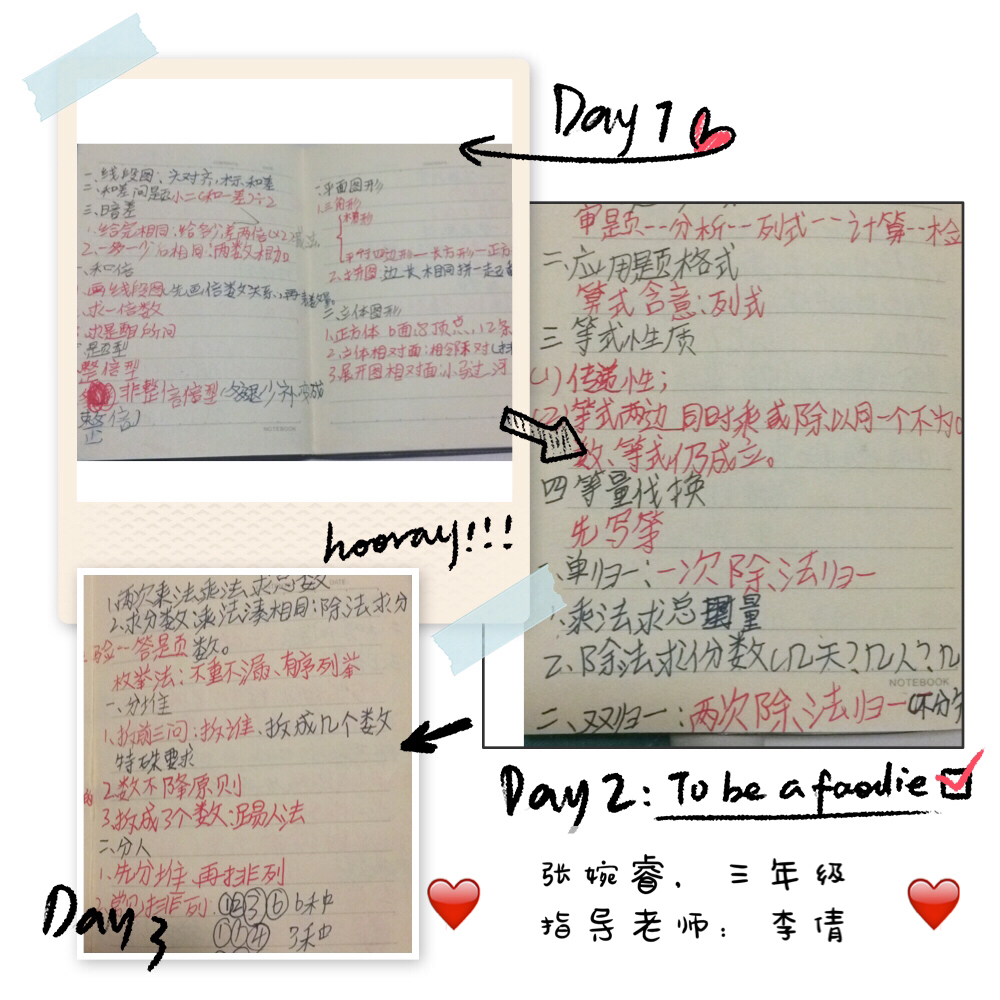 Day 1
一、线段图：头对齐，标和差
二、和差问题 小=(和-差)÷2
三、暗差
1.给完相同：给多少差两倍(×2)
2.一多一少后相同：两数相加
一、和倍
1.画线段图，先画倍数关系，再
求一倍数
求是题所问
整倍型
非整倍倍型（多退少补变成
整倍）
NOTEBOOK
一、平面图形
1.三角形
梯形
平行四边形—长方形—正方
2.拼图：边长相同拼一起
二、立体图形
1.正方体 6面8顶点，12条
2.立体相对面：相邻不对
3.展开图相对面：小马过河
NOTEBOOK
hooray!!!
审题--分析--列式--计算--检
二、应用题格式
算式含意：列式
三 等式性质
(1)传递性；
(2)等式两边同时乘或除以同一个不为0
数、等式仍成立。
四 等量代换
先写等
一、单归一：一次除法归一
1.乘法求总量
2.除法求份数（几天？几人？几
NOTEBOOK
二、双归一：两次除法归一
Day 2: To be a foodie
1.两次乘法乘法求总数
2.求分数：乘法凑相同：除法求分
验--答是页数。
枚举法：不重不漏、有序列举
一、分堆
1.拆前三问：拆谁、拆成几个数
特殊要求
2.数不降原则
3.拆成3个数：踢人法
二、分人
1.先分堆、再排列
2.常见排列：①②③⑥ 6种
3种
Day 3
张婉睿．三年级
指导老师：李倩